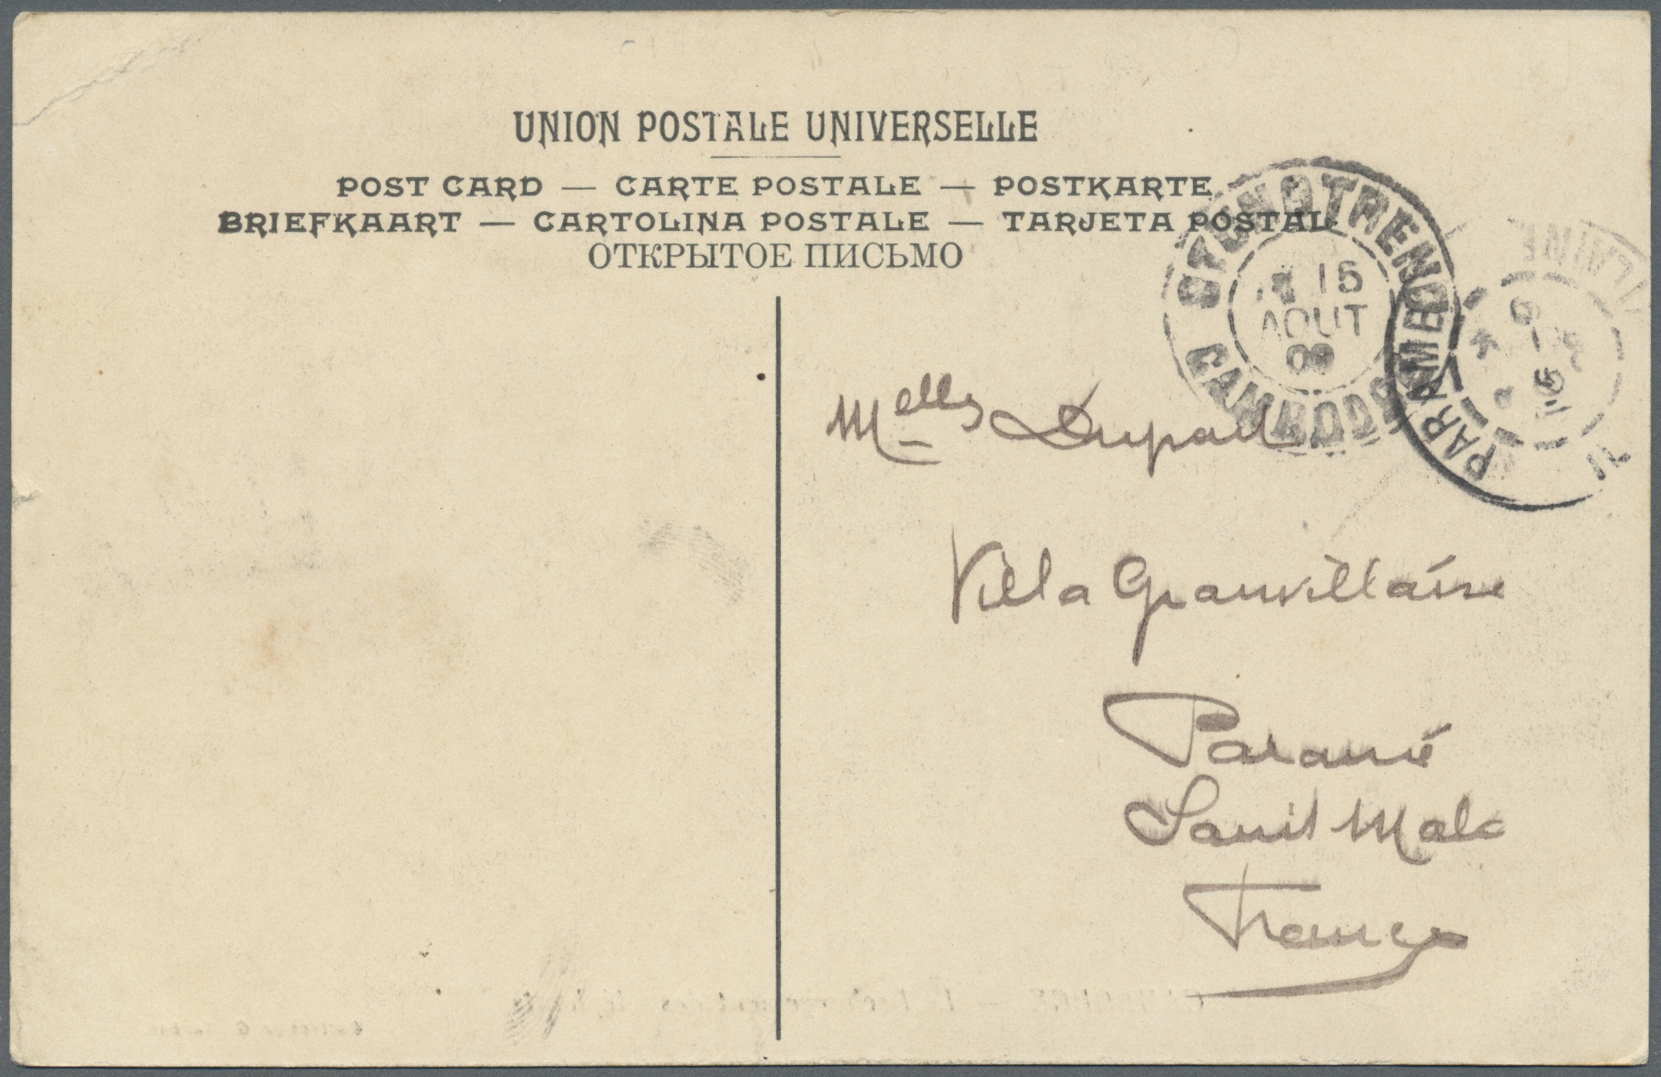 UNION POSTALE UNIVERSELLE
POST CARD — CARTE POSTALE — POSTKARTE
BRIEFKAART — CARTOLINA POSTALE — TARJETA POSTAL
ОТКРЫТОЕ ПИСЬМО
STUNGTRENG
15
AOUT
09
CAMBODGE
PARAMÉ
Melles Dupau
Villa Granvillaise
Paramé
Saint Malo
France